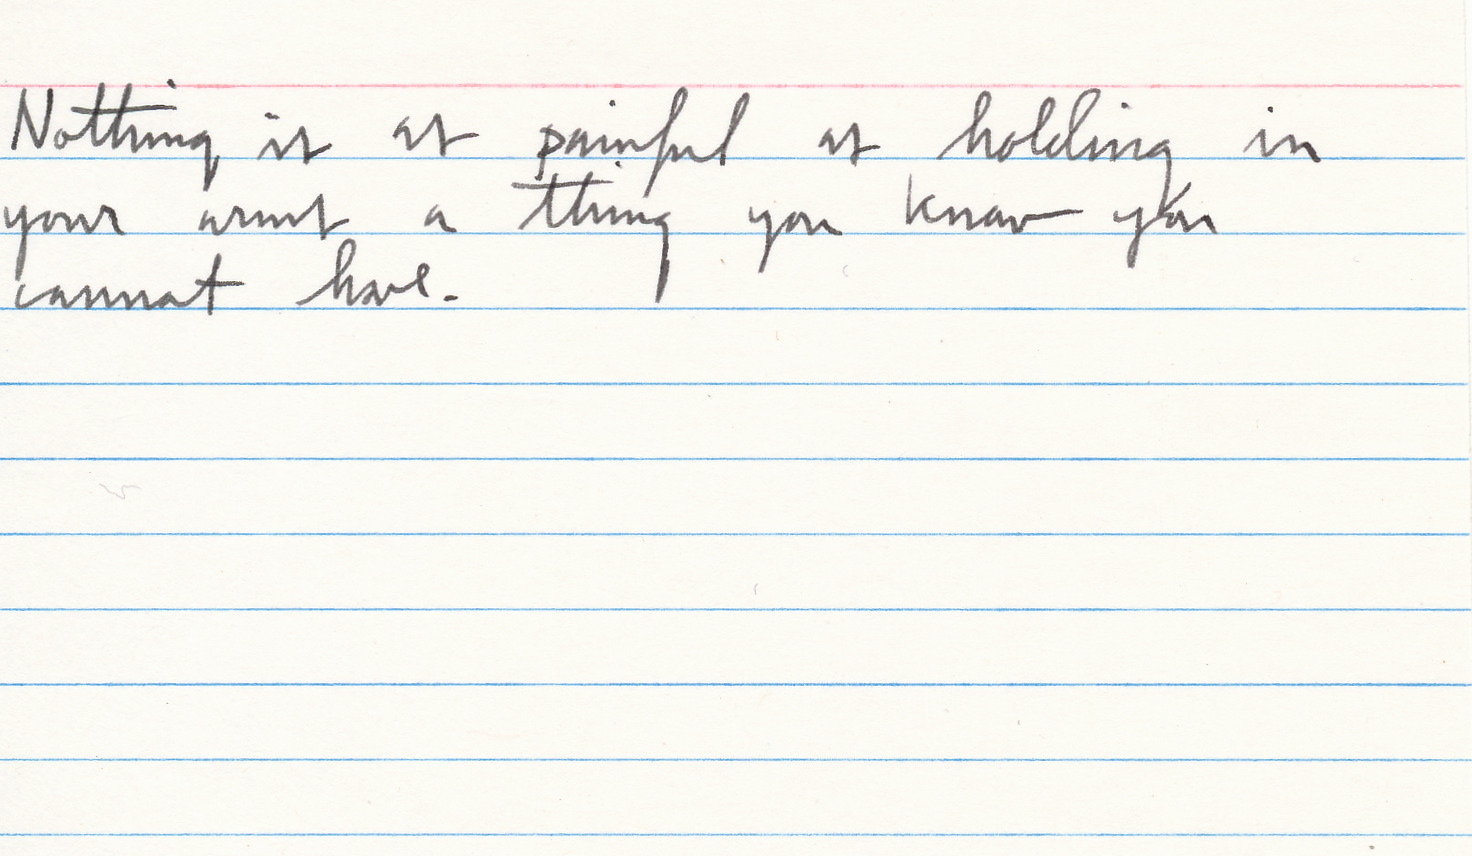 Nothing is as painful as holding in
your arms a thing you know you
cannot have.